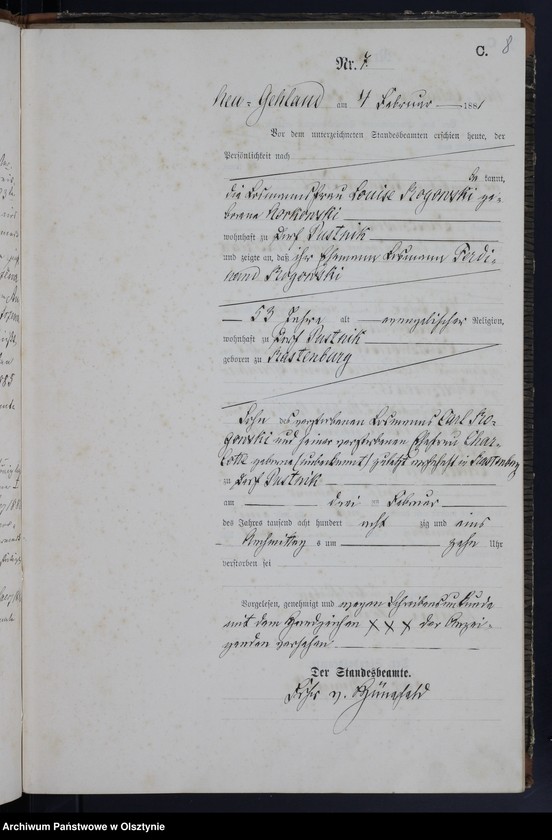 C. 8
Nr. 7.
Neu-Gehland am 4 Februar 1881
Vor dem unterzeichneten Standesbeamten erschien heute, der
Persönlichkeit nach
be kannt,
die Losmannsfrau Louise Rogowski ge-
borene
wohnhaft zu Dorf Pustnik
und zeigte an, daß ihr Ehemann Losmann Ferdi-
nand Rogowski
53 Jahre alt evangelischer Religion,
wohnhaft zu Dorf Pustnik
geboren zu Rastenburg
Sohn des verstorbenen Losmanns Carl Ro-
gowski und seiner verstorbenen Ehefrau Char-
lotte geborene (unbekannt) zuletzt wohnhaft in Rastenburg
zu Dorf Pustnik
am drei Februar
des Jahres tausend acht hundert acht zig und eins
Nachmittag s um zehn Uhr
verstorben sei
Vorgelesen, genehmigt und wegen Schreibensunkunde
mit dem Handzeichen XXX der Anzei-
genden versehen
Der Standesbeamte.
v. Hünefeld
Archiwum Państwowe w Olsztynie